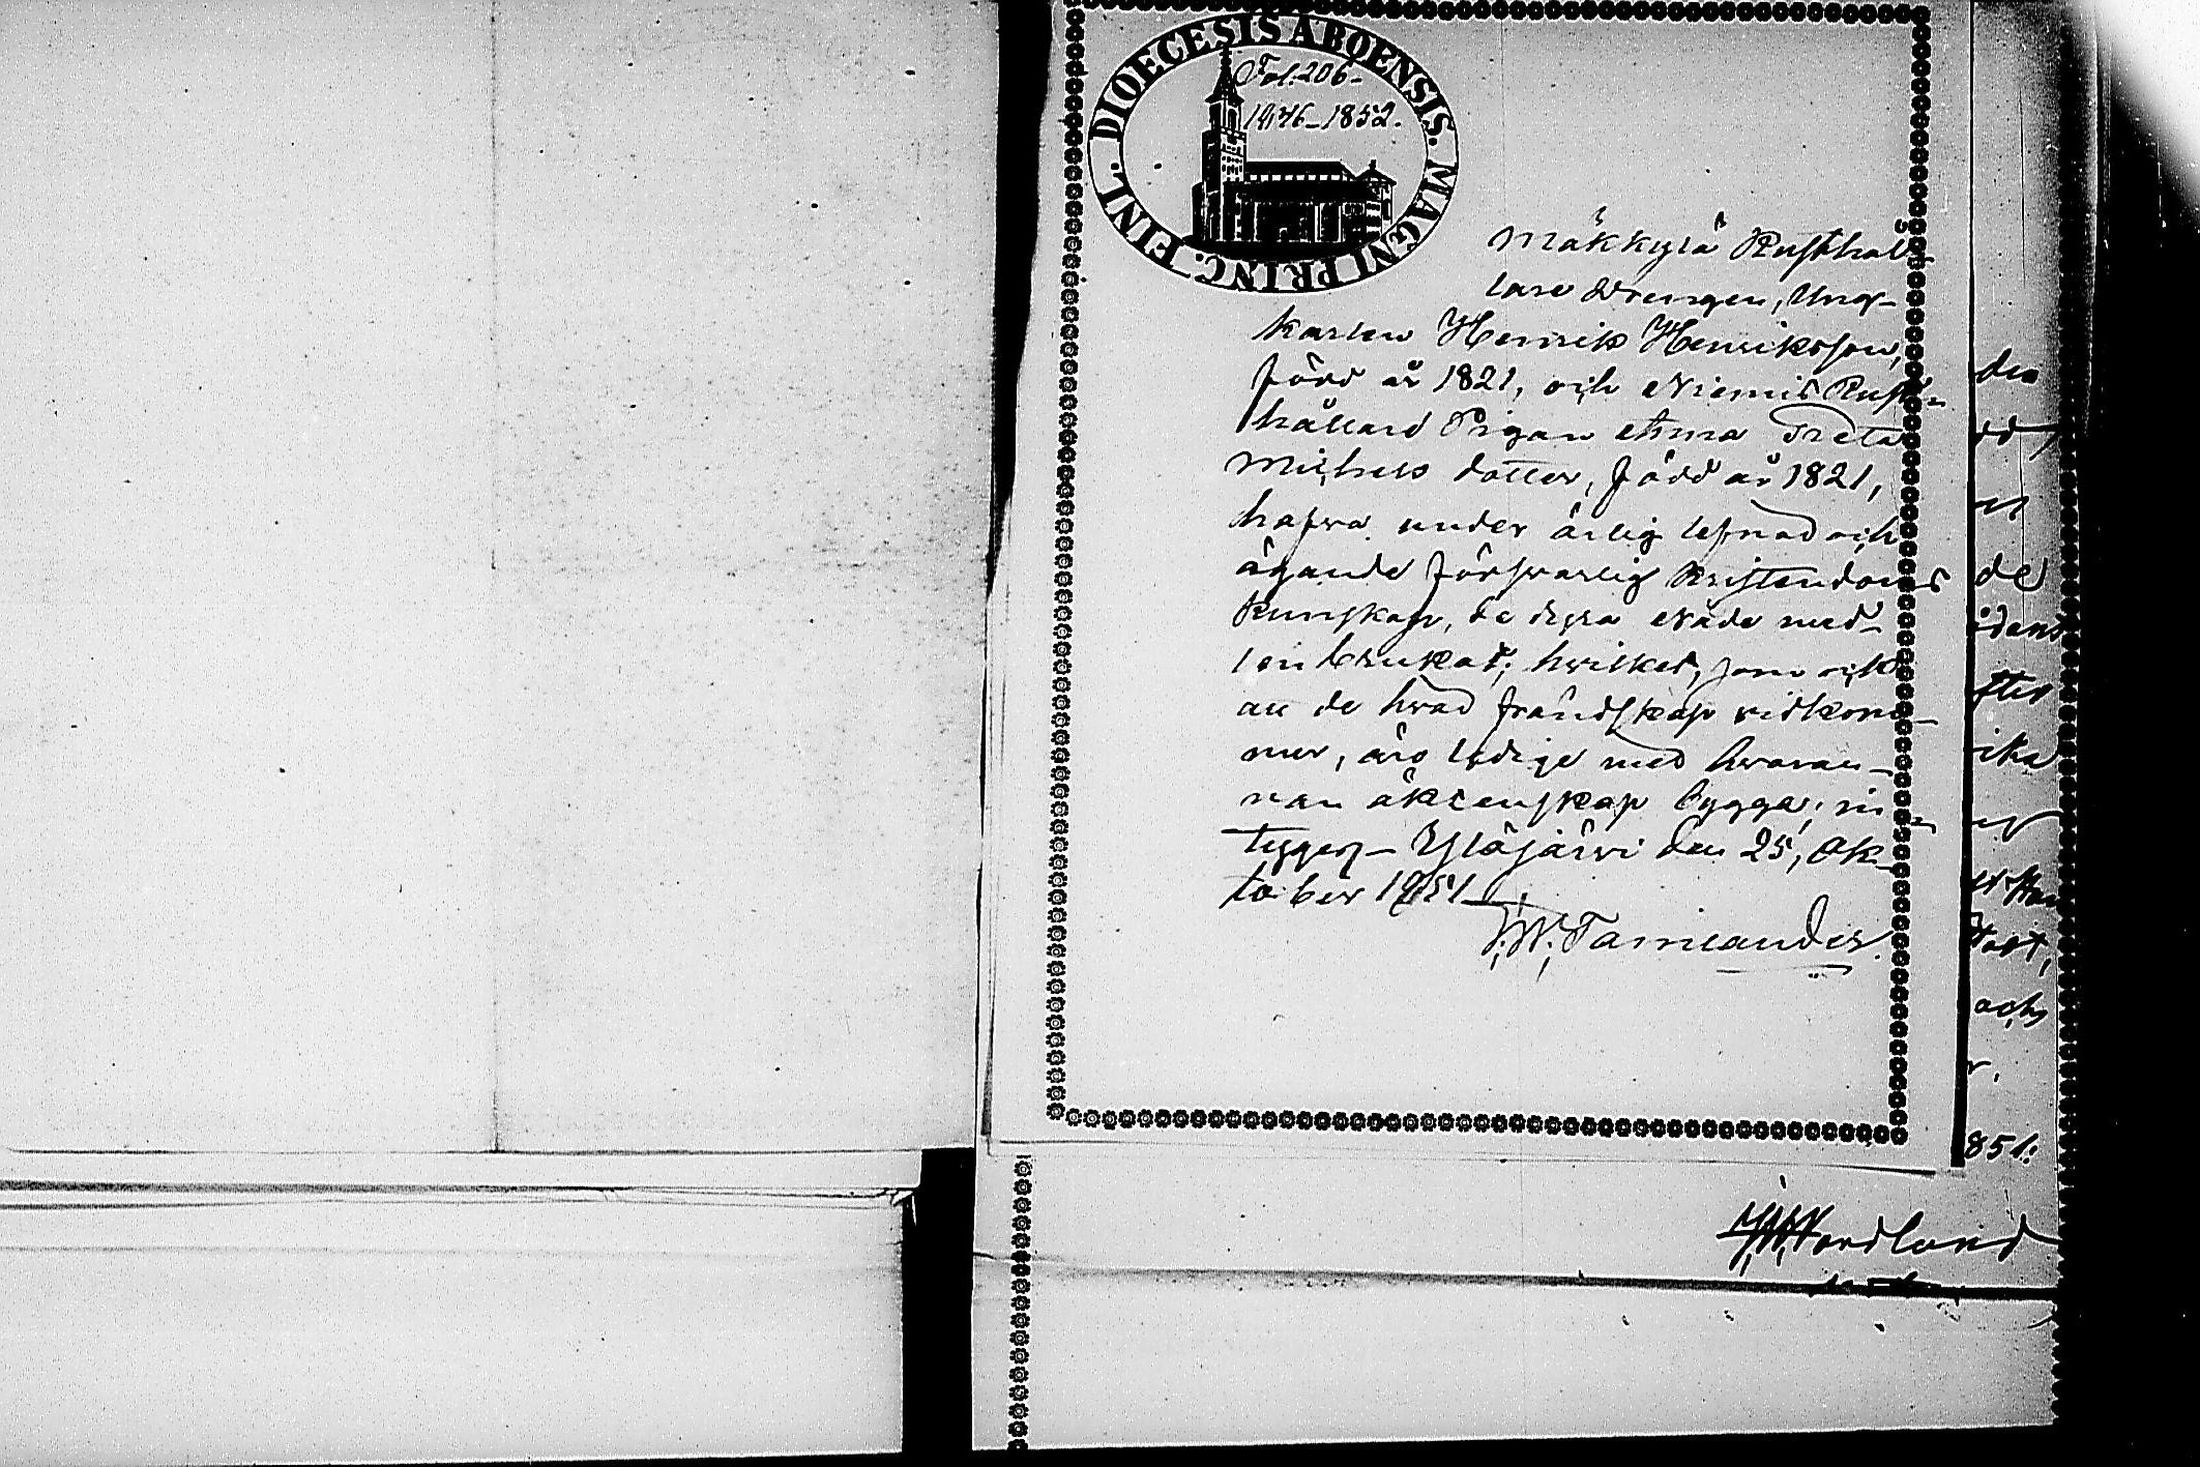 DIOECESIS ABOENSIS. MAGNI PRINC. FINL.
Fol. 206-
1846-1852.
Mäkkylä Rusthål-
lare Drengen, Ung-
karlen Henrik Henriksson,
född år 1821, och Niemis Rust-
hållars Pigan Anna Greta
Michels dotter, född år 1821,
hafwa under ärlig lefnad och
ägande förswarlig Kristendoms
Kunskap, de dyra Nåde med-
len brukat; hwilket, som ock
att de hwad frändskap widkom-
mer, äro ledige med hwaran-
nan äktenskap bygga, in-
tygger Ylöjärwi den 25, Ok-
tober 1851
Tamleander.
den
de
ödens
efter
ika
och
r.
851.
Nordlund